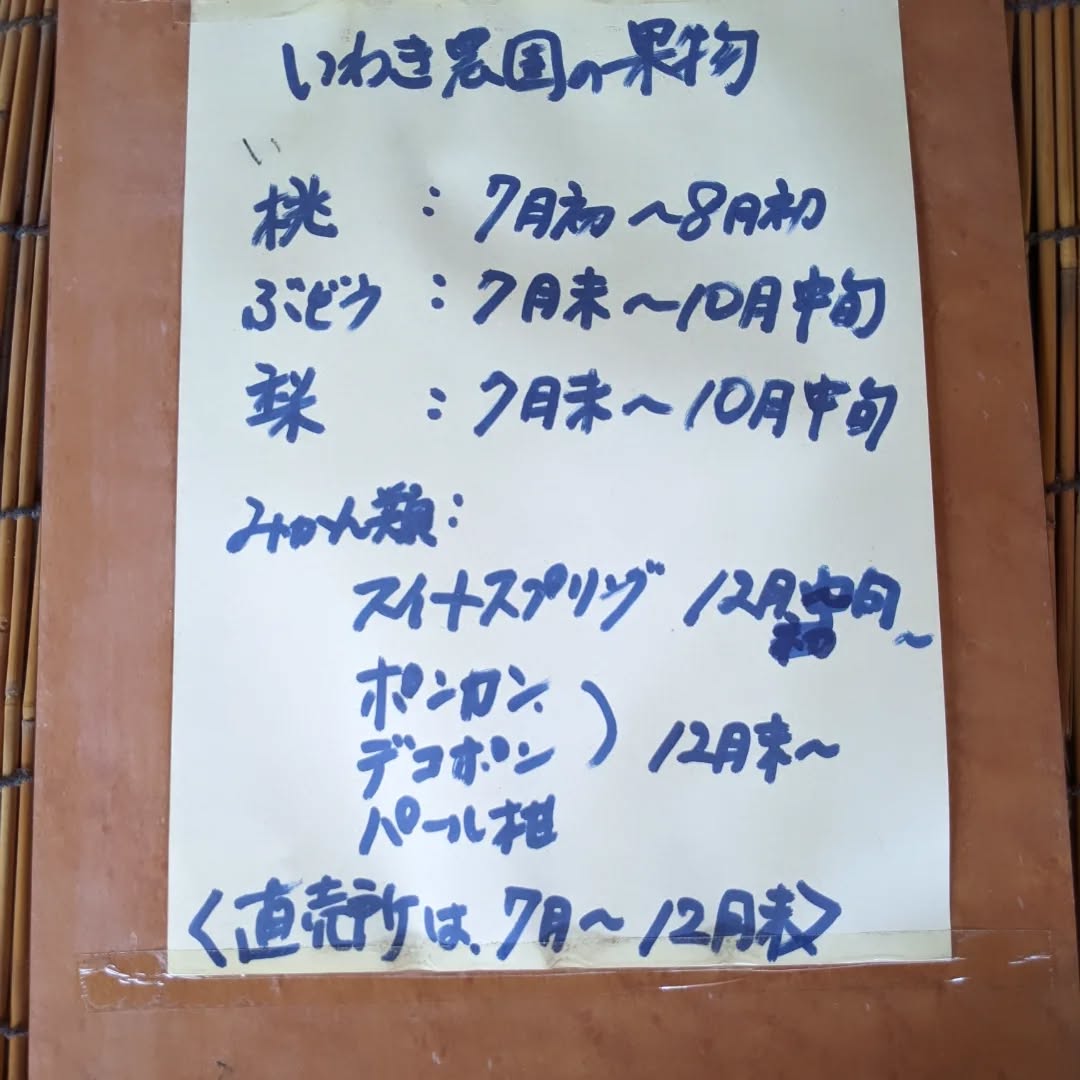 いわき農園の果物
桃 : 7月初〜8月初
ぶどう : 7月末〜10月中旬
梨 : 7月末〜10月中旬
みかん類:
スイートスプリング 12月初旬〜
ポンカン
デコポン 12月末〜
パール柑
〈直売所は、7月〜12月末〉